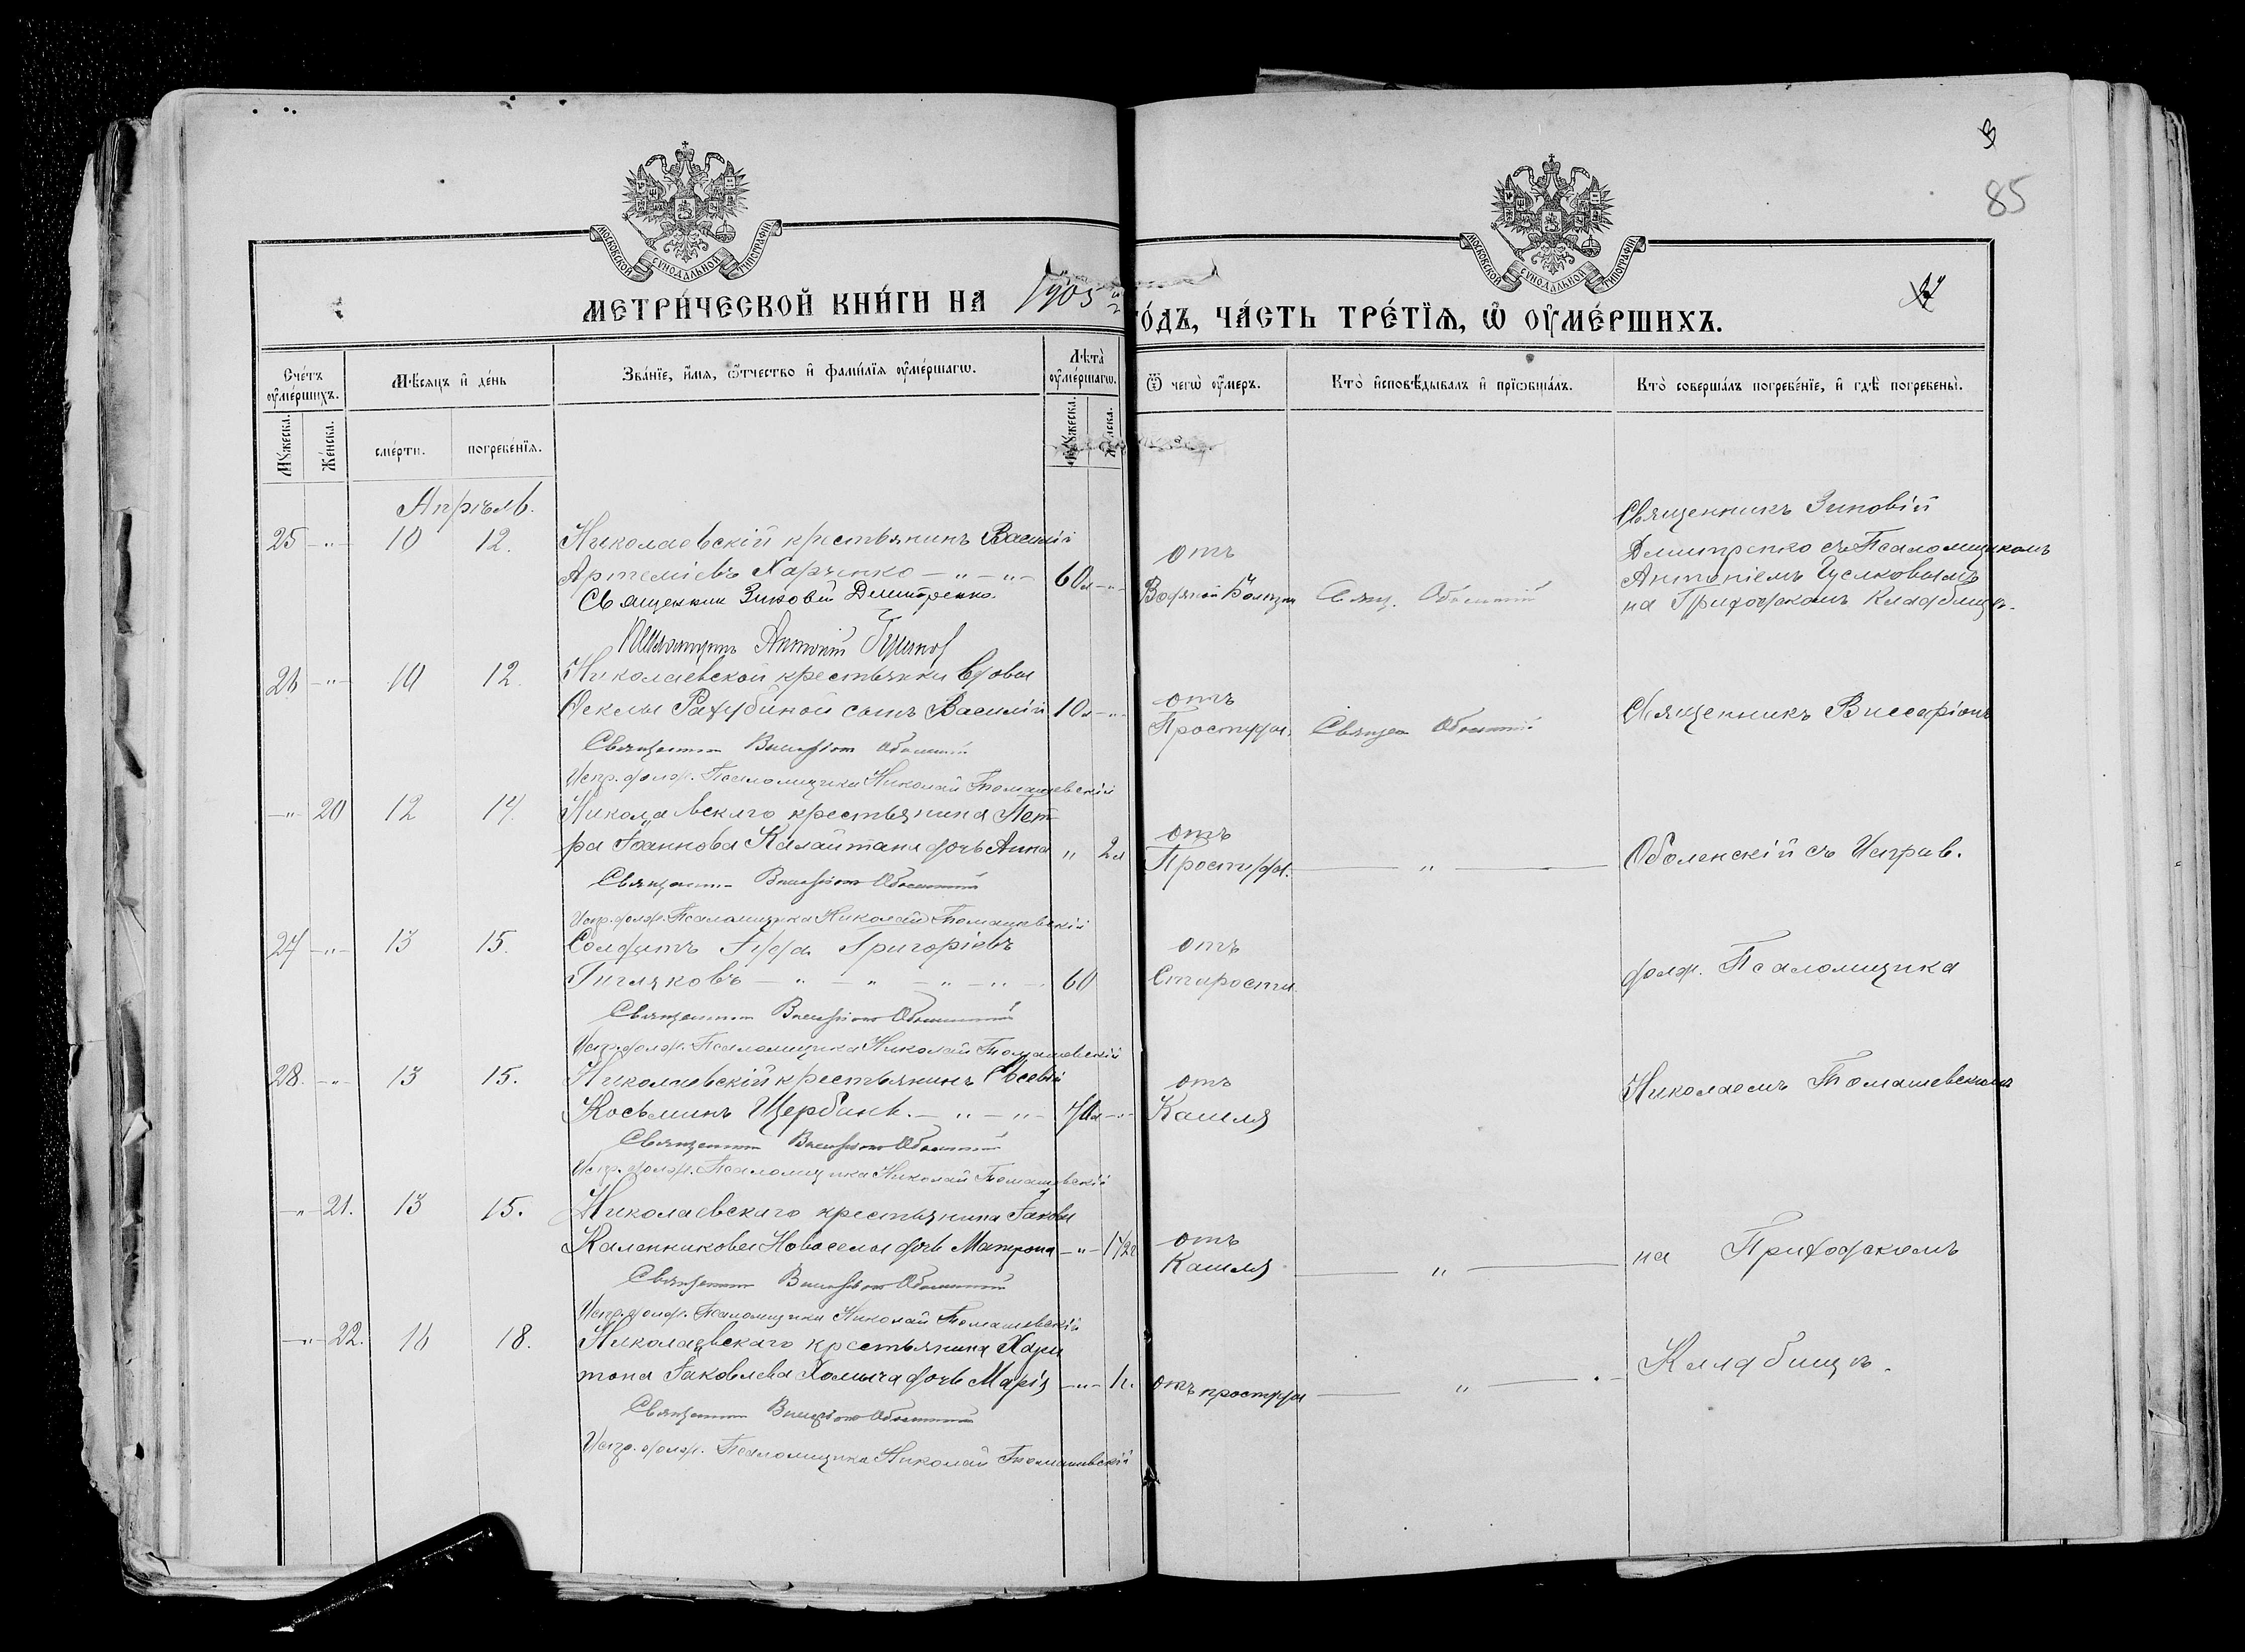 3
85
МОСКОВСКОЙ СѴНОДАЛЬНОЙ ТИПОГРАФІИ
МОСКОВСКОЙ СѴНОДАЛЬНОЙ ТИПОГРАФІИ
МЕТРИ́ЧЕСКОЙ КНИ́ГИ НА 1905
ГО́ДЪ, ЧА́СТЬ ТРЕ́ТЇѦ, Ѿ ОУ҆МЕ́РШИХЪ.
Сче́тъ оу҆ме́ршихъ.
Мѣ́сяцъ и҆ де́нь
Зва́нїе, и҆́мя, ѻ҆́тчество и҆ фами́лїя оу҆ме́ршагѡ.
Лѣ́та оу҆ме́ршагѡ.
Ѿ чегѡ̀ оу҆́меръ.
Кто̀ и҆сповѣ́дывалъ и҆ прїѡбща́лъ.
Кто̀ соверша́лъ погребе́нїе, и҆ гдѣ̀ погребены̀.
Му́жеска.
Же́нска.
сме́рти.
погребе́нїя.
Му́жеска.
Апрѣль.
25 — „ — 10 12. Николаевскій крестьянинъ Василій
Артеміевъ Харченко — „ — „ — 60 л — „
Священник Зиновій Дмитренко
Псаломщикъ Антоній
отъ
Водяной Болезни
Свящ. Оболенскій
Священникъ Зиновій
Дмитренко съ Псаломщикомъ
Антоніемъ
на Приходскомъ Кладбищѣ.
26 — „ — 10 12. Николаевской крестьянки вдовы
Феклы сынъ Василій 10 л — „
Священникъ Виссаріонъ Оболенскій
Испр. долж. Псаломщика Николай Томашевскій
отъ
Простуды.
Священ Оболенскій
Священникъ Виссаріонъ
— „ 20 12 14. Николаевскаго крестьянина Пет-
ра Іоаннова Калайтана дочь Анна „ 2 л
Священникъ Виссаріонъ Оболенскій
Испр. долж. Псаломщика Николай Томашевскій
отъ
Простуды.
— „ —
Оболенскій съ Исправ.
27 — „ — 13 15. Солдатъ Григоріевъ
— „ — „ — „ — „ — 60
Священникъ Виссаріонъ Оболенскій
Испр. долж. Псаломщика Николай Томашевскій
отъ
Старости
долж. Псаломщика
28. — „ — 13 15. Николаевскій крестьянинъ Евсевій
Косьминъ Щербина. — „ — „ — 70 л — „ —
Священникъ Виссаріонъ Оболенскій
Испр. долж. Псаломщика Николай Томашевскій
отъ
Кашля
Николаемъ Томашевскимъ
— „ — 21. 13 15. Николаевскаго крестьянина Іакова
Каленникова Новоселы дочь Матрона — „ — 1 1/2 г
Священникъ Виссаріонъ Оболенскій
Испр. долж. Псаломщика Николай Томашевскій
отъ
Кашля
— „ —
на Приходскомъ
— „ — 22. 16 18. Николаевскаго крестьянина Хари
тона Іаковлева дочь Марія — „ — 1 г.
Священникъ Виссаріонъ Оболенскій
Испр. долж. Псаломщика Николай Томашевскій
отъ простуды
— „ —
Кладбищѣ.